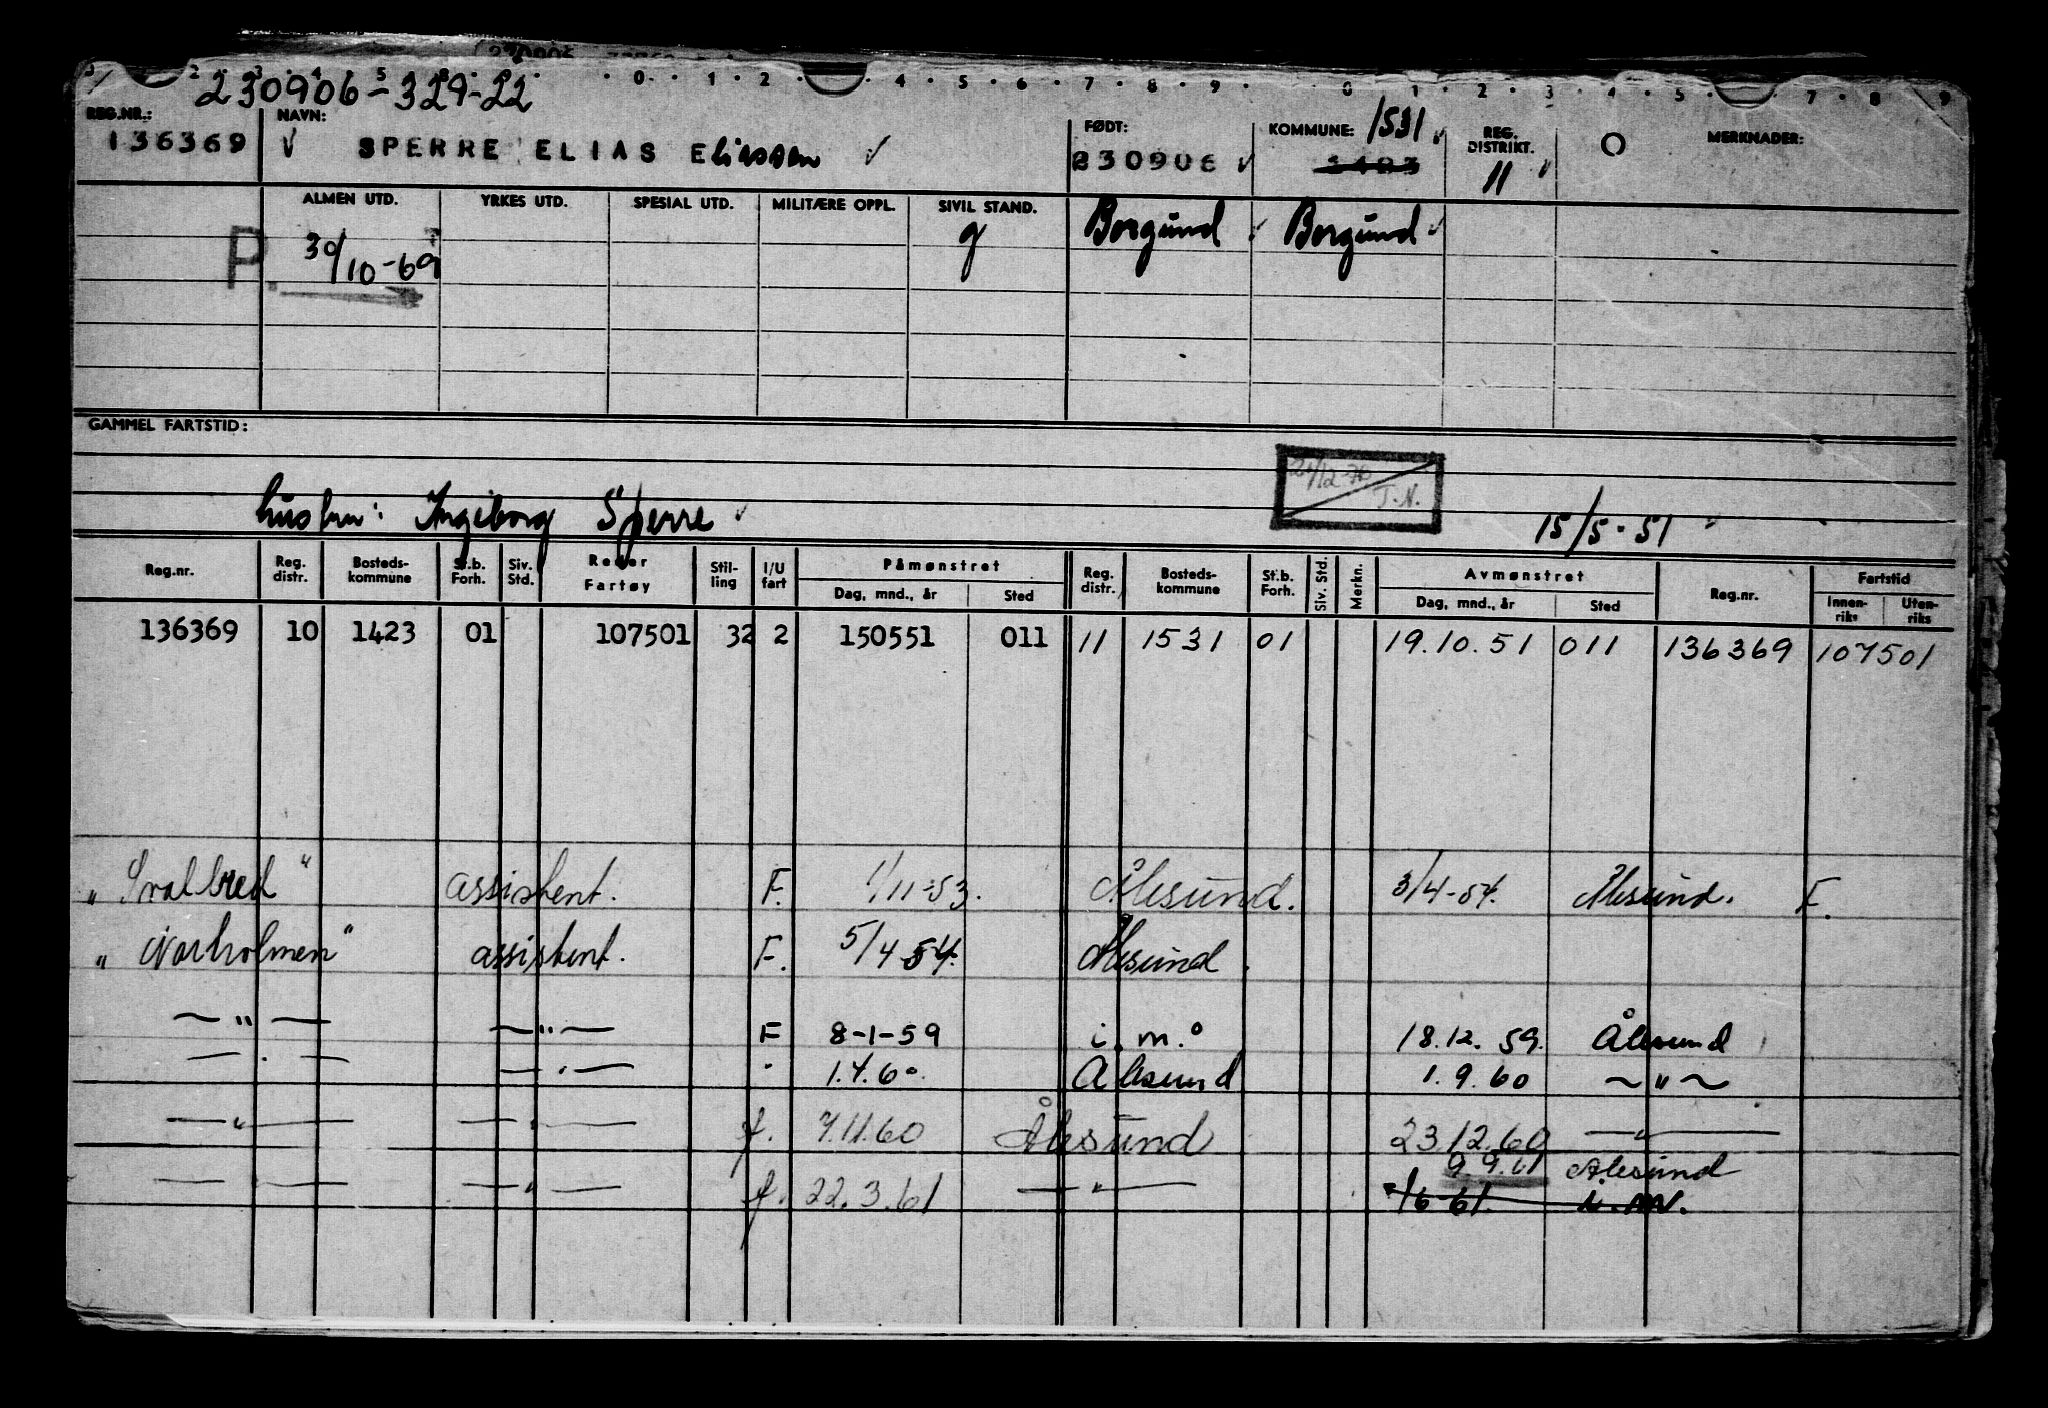 230906-329-22
REG.NR.: NAVN: FØDT: KOMMUNE: 1531 REG. DISTRIKT. MERKNADER:
136369 SPERRE ELIAS Eliassen 230906 11 O
ALMEN UTD. YRKES UTD. SPESIAL UTD. MILITÆRE OPPL. SIVIL STAND.
P. 30/10-69 g Borgund Borgund
GAMMEL FARTSTID:
T.N.
hustru: Ingeborg Sperre 15/5-51
Reg.nr. Reg. distr. Bosteds-kommune St.b. Forh. Siv. Std. Reder Fartøy Stil-ling I/U fart Påmønstret Dag, mnd., år Sted Reg. distr. Bosteds-kommune St.b. Forh. Siv. Std. Merkn. Avmønstret Dag, mnd., år Sted Reg.nr. Fartstid Innen-riks Uten-riks
136369 10 1423 01 107501 32 2 150551 011 11 1531 01 19.10.51 011 136369 107501
"Svalbred" assistent. F. 1/11-53. Ålesund. 3/4-54. Ålesund. F.
"Norholmen" assistent. F. 5/4-54. Ålesund.
—"— —"— F 8-1-59 i.m.å 18.12.59. Ålesund
—"— —"— " 1.4.60. Ålesund 1.9.60 —"—
—"— —"— f. 7.11.60 Ålesund 23.12.60 —"—
9.9.61 Ålesund
—"— —"— f. 22.3.61 —"—